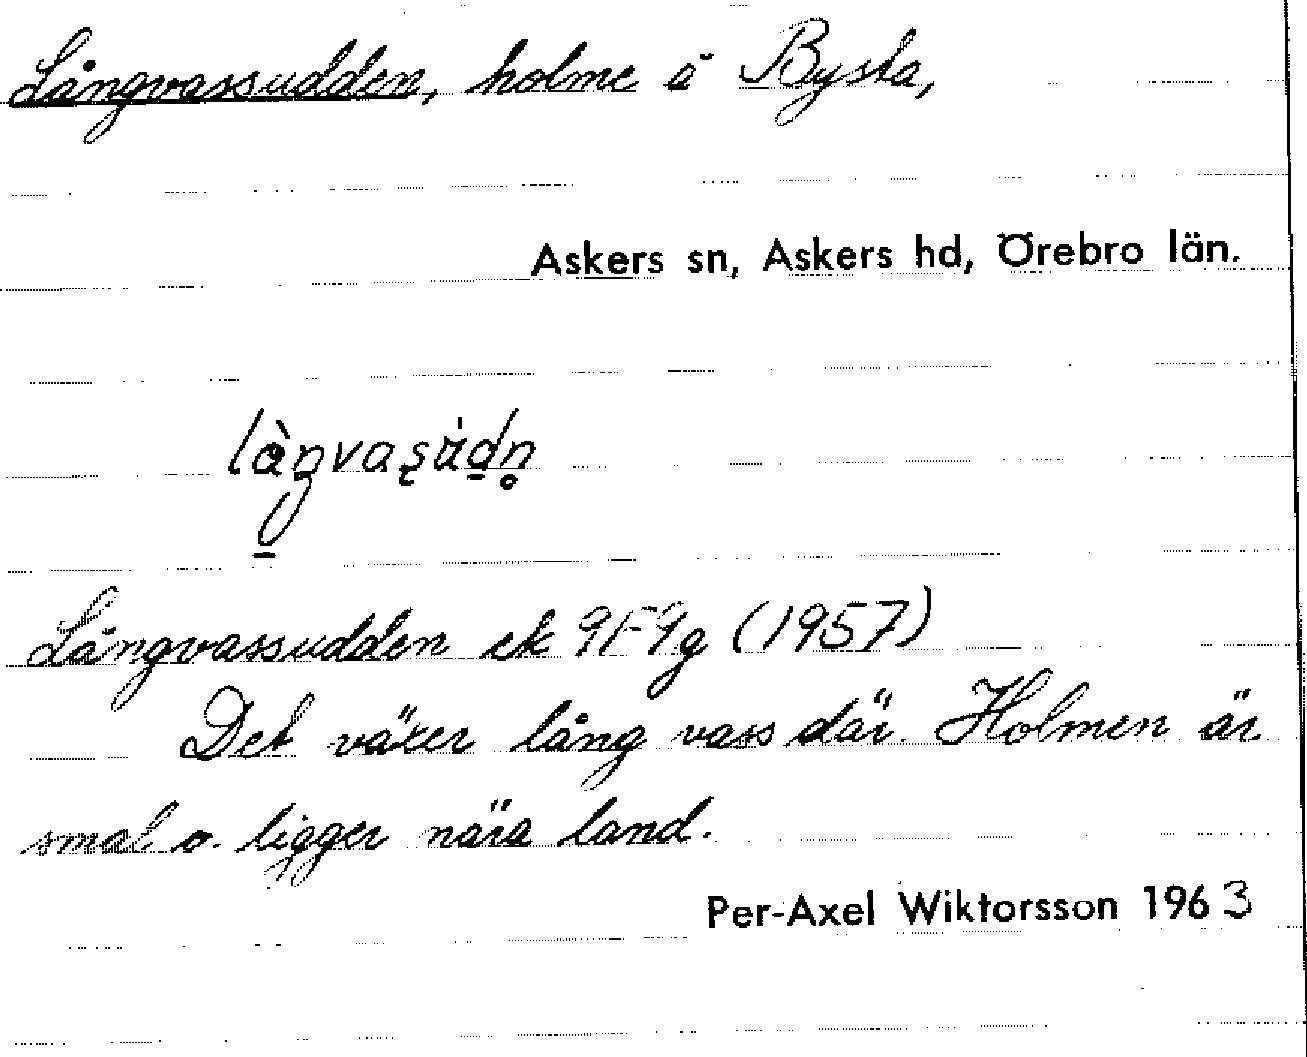 Långvassudden, holme å Bysta,
Askers sn, Askers hd, Örebro län.
Långvassudden ek 9F9g (1957)
Det växer lång vass där. Holmen är
smal o. ligger nära land.
Per-Axel Wiktorsson 1963